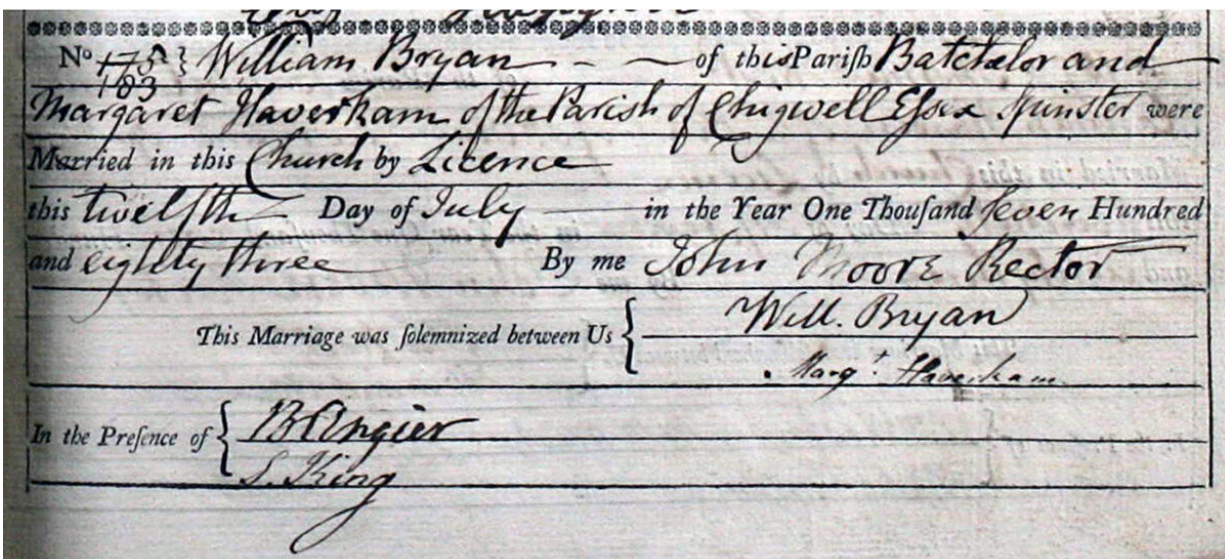 No 175 } William Bryan - - of this Pariſh Batchelor and
183
Margaret Haverkam of the Parish of Chigwell Eſsex Spinster were
Married in this Church by Licence
this twelfth Day of July in the Year One Thouſand ſeven Hundred
and eighty three By me John Moore Rector
This Marriage was ſolemnized between Us { Will. Bryan
Margt. Haverkam
In the Preſence of { B Angier
S. King